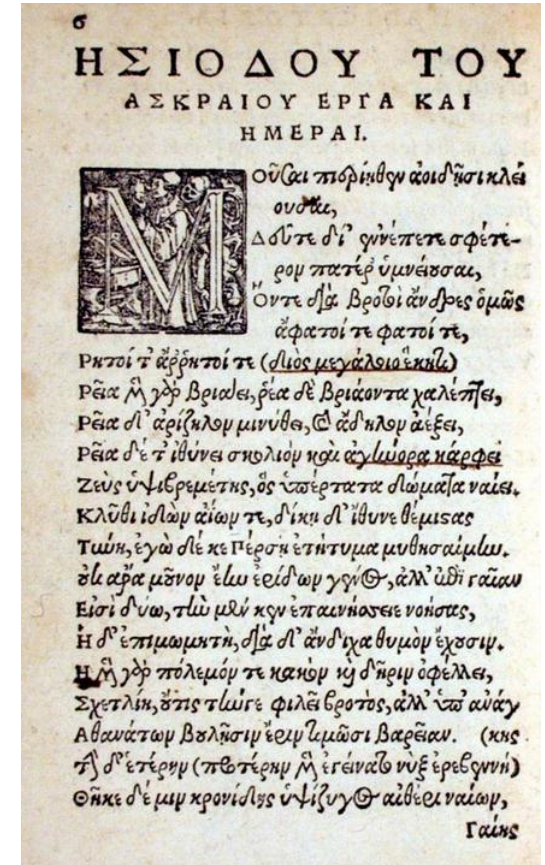 6
ΗΣΙΟΔΟΥ ΤΟΥ
ΑΣΚΡΑΙΟΥ ΕΡΓΑ ΚΑΙ
ΗΜΕΡΑΙ.
Μοῦσαι πιερίηθεν ἀοιδῇσι κλεί
ουσαι,
Δεῦτε δί' ἐννέπετε σφέτε-
ρον πατέρ' ὑμνείουσαι,
Ὅντε διὰ βροτοὶ ἄνδρες ὁμῶς
ἄφατοί τε φατοί τε,
Ρητοί τ' ἄρρητοί τε (διὸς μεγάλοιο ἕκητι)
Ρεῖα μὲν γὰρ βριάει, ῥέα δὲ βριάοντα χαλέπτει,
Ρεῖα δ' ἀρίζηλον μινύθει, καὶ ἄδηλον ἀέξει,
Ρεῖα δέ τ' ἰθύνει σκολιὸν καὶ ἀγήνορα κάρφει
Ζεὺς ὑψιβρεμέτης, ὃς ὑπέρτατα δώματα ναίει.
Κλῦθι ἰδὼν ἀΐων τε, δίκῃ δ' ἴθυνε θέμιστας
Τύνη, ἐγὼ δέ κε Πέρσῃ ἐτήτυμα μυθησαίμην.
οὐκ ἄρα μοῦνον ἔην ἐρίδων γένος, ἀλλ' ἐπὶ γαῖαν
Εἰσὶ δύω, τὴν μέν κεν ἐπαινήσειε νοήσας,
Η δ' ἐπιμωμητὴ, διὰ δ' ἄνδιχα θυμὸν ἔχουσιν.
Η μὲν γὰρ πόλεμόν τε κακὸν καὶ δῆριν ὀφέλλει,
Σχετλίη, οὔτις τήνγε φιλεῖ βροτὸς, ἀλλ' ὑπ' ἀνάγ
Αθανάτων βουλῇσιν ἔριν τιμῶσι βαρεῖαν. (κης
τὴν δ' ἑτέρην (προτέρην μὲν ἐγείνατο νὺξ ἐρεβεννή)
Θῆκε δέ μιν κρονίδης ὑψίζυγος αἰθέρι ναίων,
Γαίης